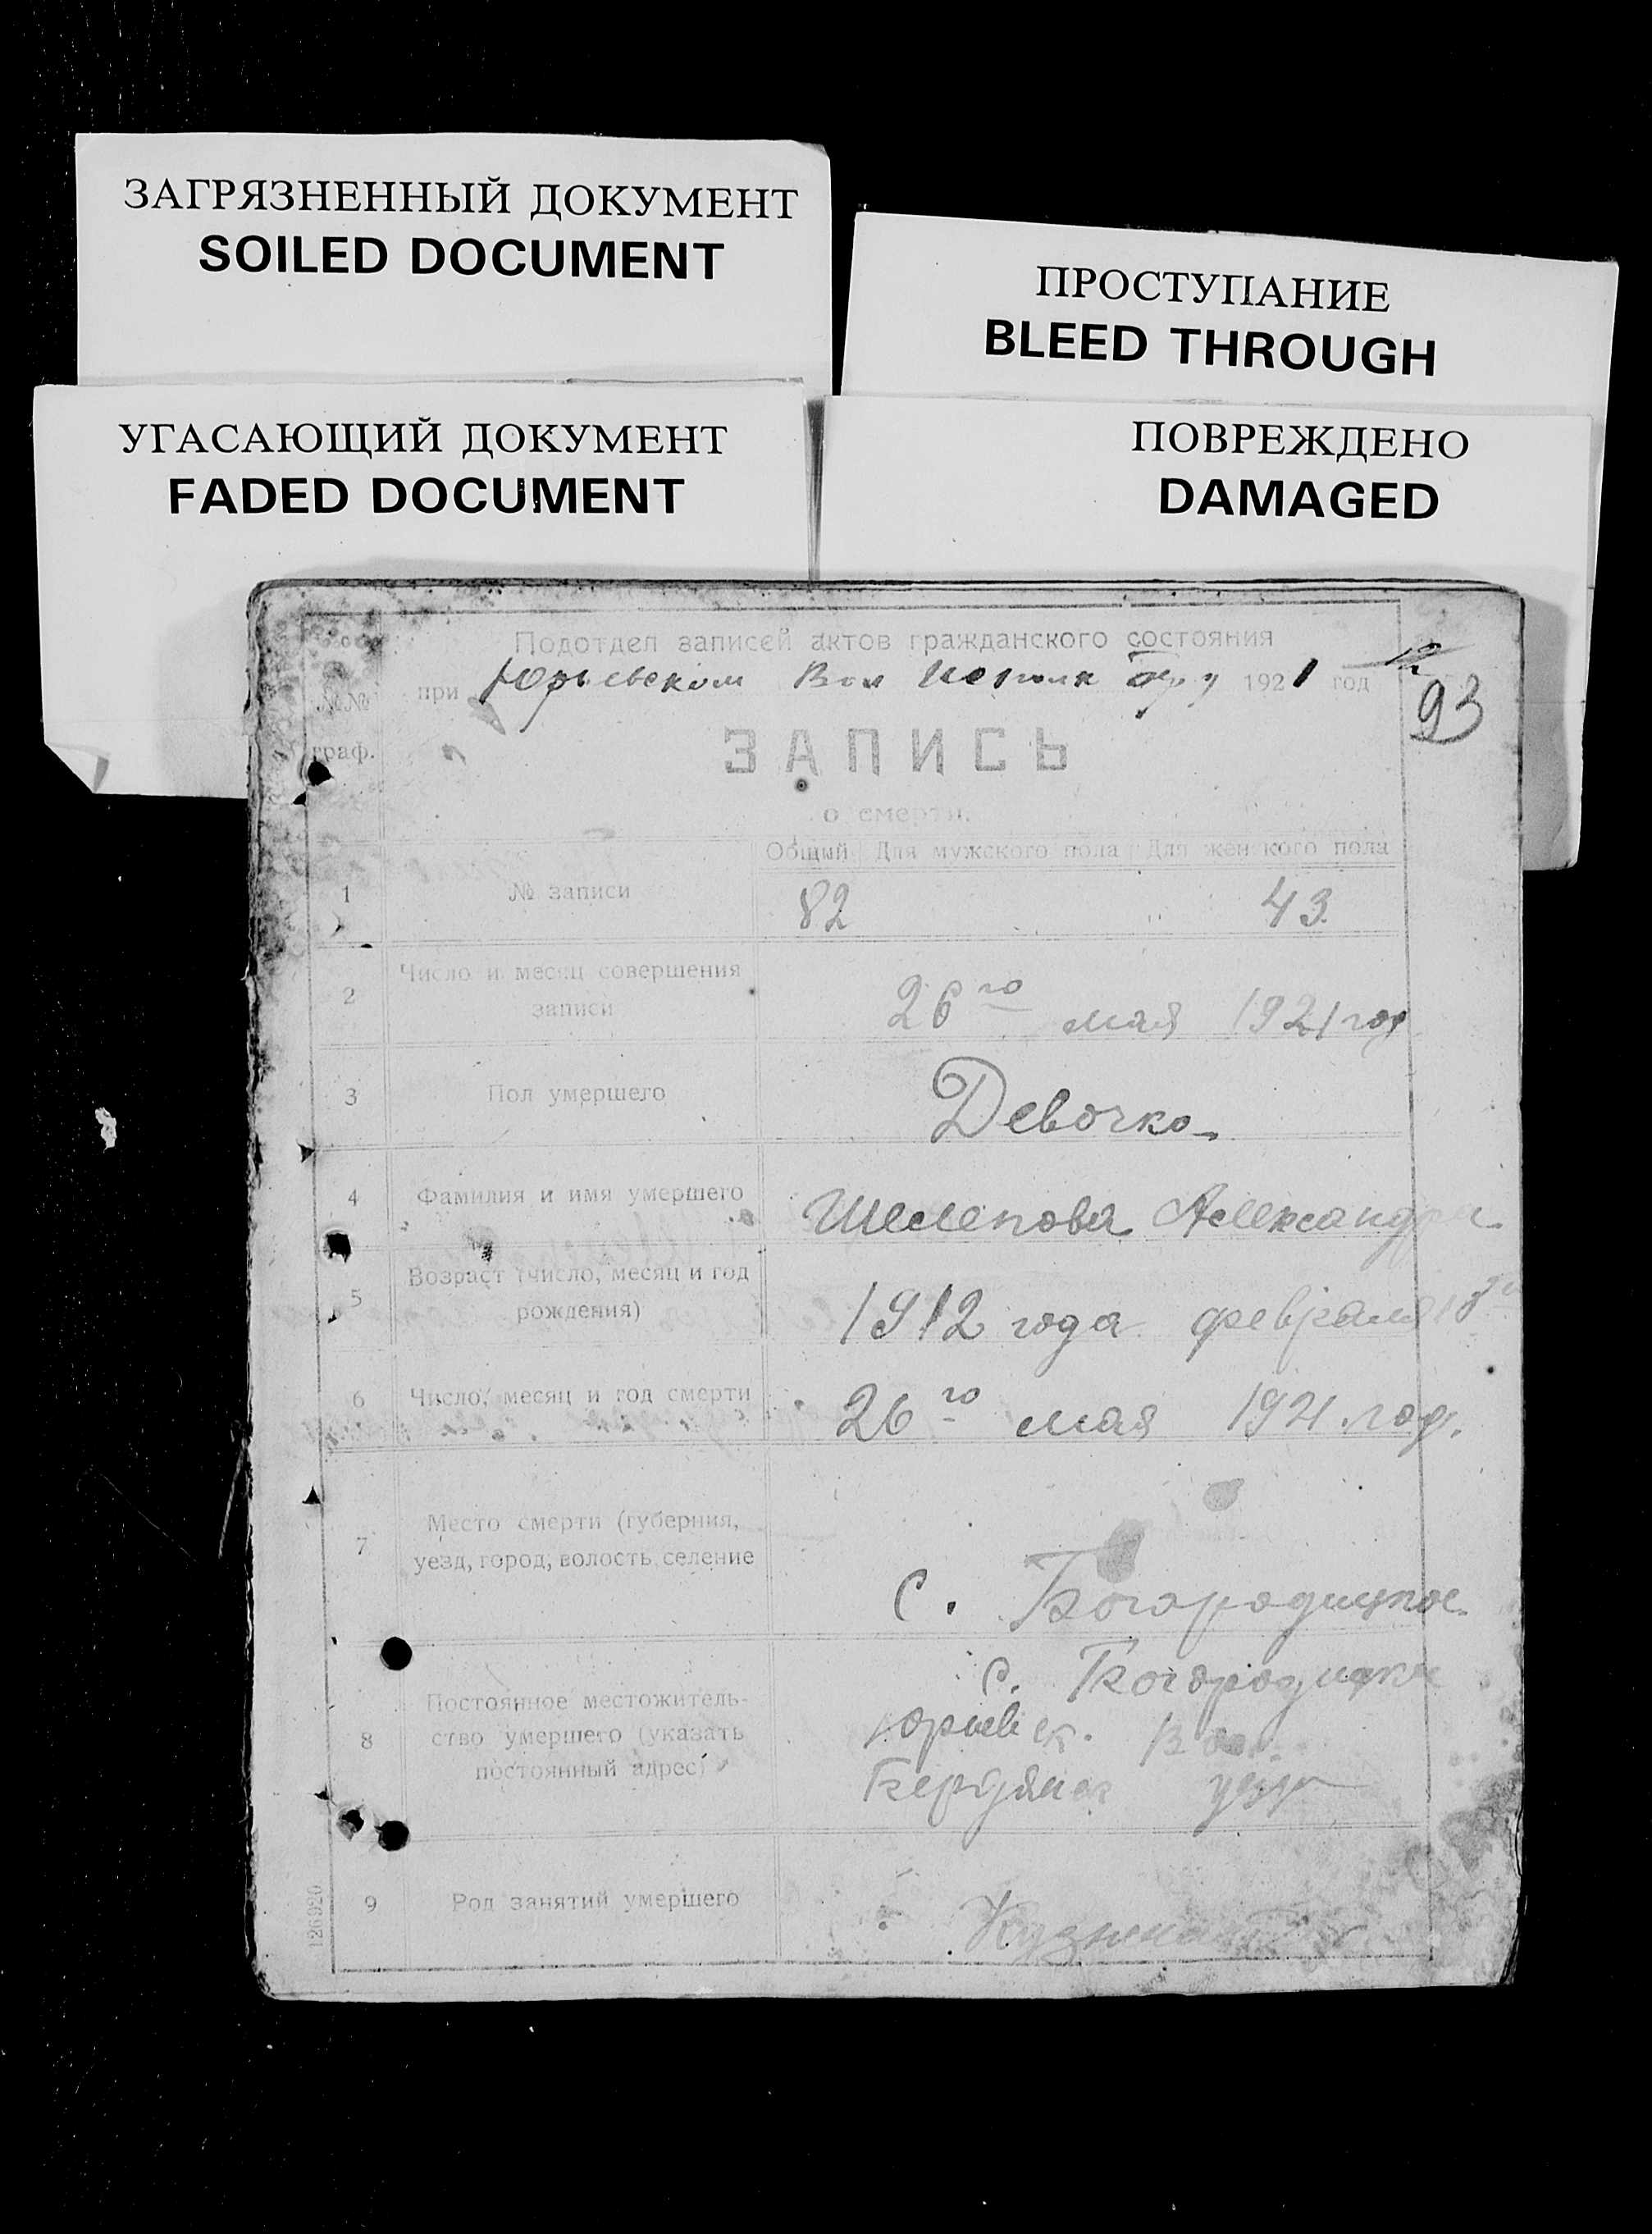 ЗАГРЯЗНЕННЫЙ ДОКУМЕНТ
SOILED DOCUMENT
ПРОСТУПАНИЕ
BLEED THROUGH
УГАСАЮЩИЙ ДОКУМЕНТ
FADED DOCUMENT
ПОВРЕЖДЕНО
DAMAGED
Подотдел записей актов гражданского состояния
при Юрьевском Вол 1921 год
93
№№
граф.
ЗАПИСЬ
о смерти.
Общий Для мужского пола Для женского пола
1 № записи 82 " 43
2 Число и месяц совершения
записи 26го мая 1921 год
3 Пол умершего Девочка
4 Фамилия и имя умершего Шелепова Александра
5 Возраст (число, месяц и год
рождения) 1912 года февраля
6 Число, месяц и год смерти 26го мая 1921 год.
7 Место смерти (губерния,
уезд, город, волость, селение С. Богородицкое
8 Постоянное местожитель-
ство умершего (указать
постоянный адрес)
С.
Юрьевск. Вол.
Бердянск уезд
9 Род занятий умершего
126920